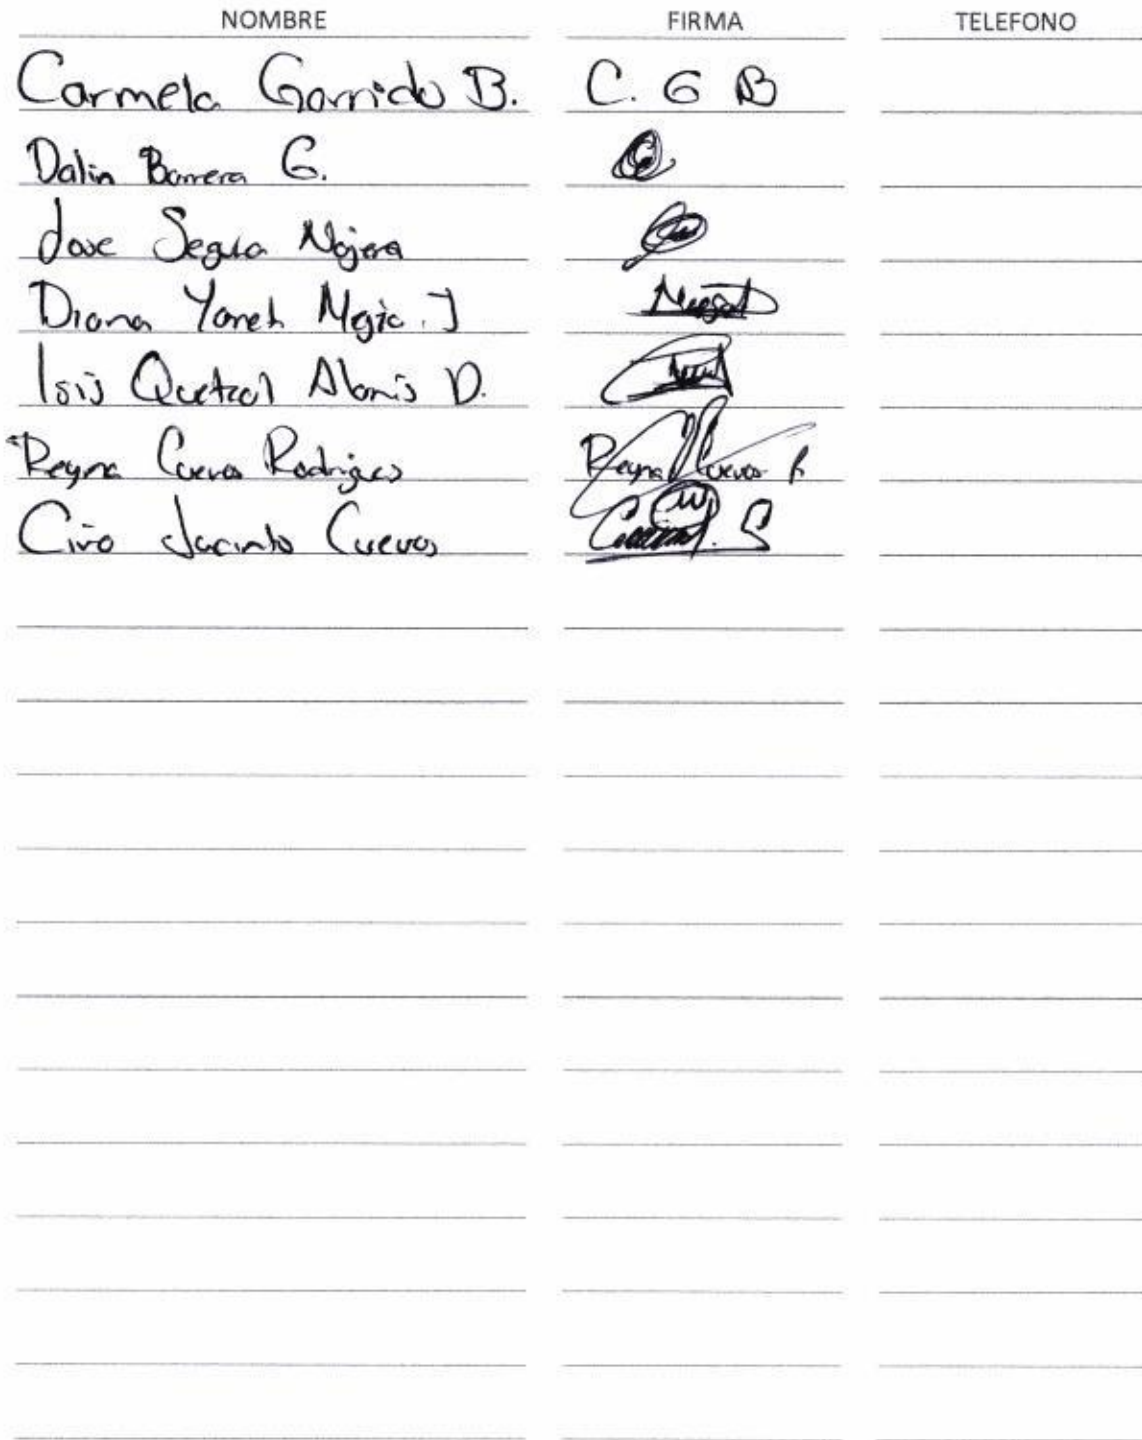 NOMBRE FIRMA TELEFONO
Carmela Garrido B. C. G B
Dalin Barrera G.
Jose Segura Najera
Diana Yaneh Mejia J
Isis Quetzal Alanis D.
Reyna Cuevas Rodrigues Reyna Cuevas R
Ciro Jacinto Cuevas